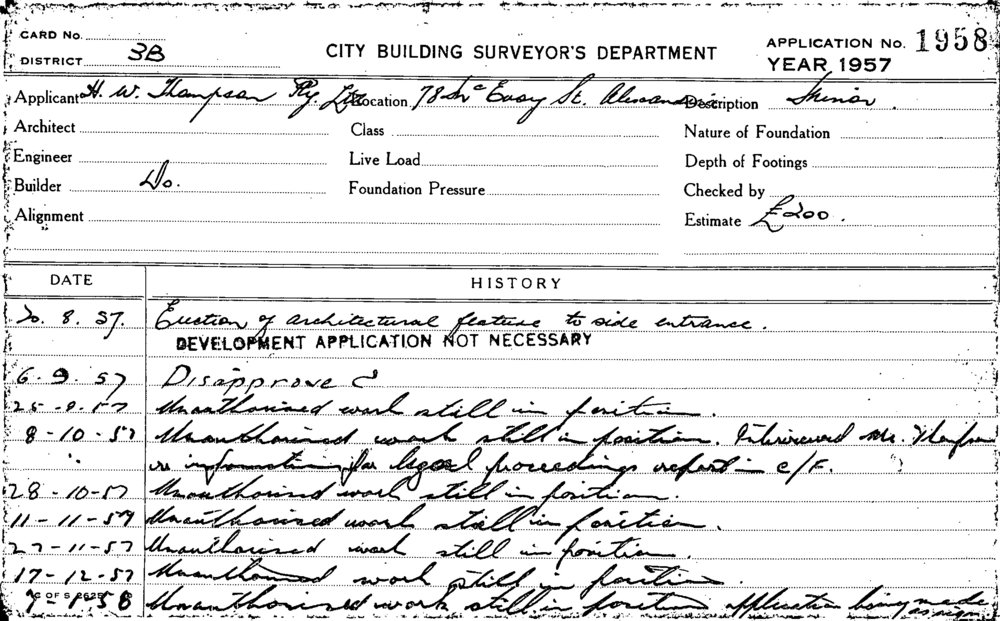 CARD No.
DISTRICT 3B
CITY BUILDING SURVEYOR'S DEPARTMENT
APPLICATION No. 1958
YEAR 1957
Applicant H. W. Thompson Pty. Ltd Location 78 McEvoy St. Alexandria Description Minor
Architect Class Nature of Foundation
Engineer Live Load Depth of Footings
Builder Do. Foundation Pressure Checked by
Alignment Estimate £200.
DATE HISTORY
20. 8. 57. Erection of architectural feature to side entrance.
DEVELOPMENT APPLICATION NOT NECESSARY
6. 9. 57 Disapproved
25-9-57 Unauthorised work still in position.
8-10-57 Unauthorised work still in position. Interviewed Mr. Thompson
re information for legal proceedings report in c/F.
28-10-57 Unauthorised work still in position.
11-11-57 Unauthorised work still in position.
27-11-57 Unauthorised work still in position.
17-12-57 Unauthorised work still in position.
C OF S
7-1-58 Unauthorised work still in position application being made